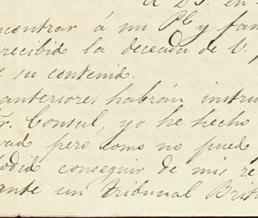 contrar á mi Pe y fam
recibid la deceada de V. p
su contenid.
anteriores habrán instru
Consul, yo he hecho
pero como no pued
conseguir de mis re
ante un Tribunal Brit